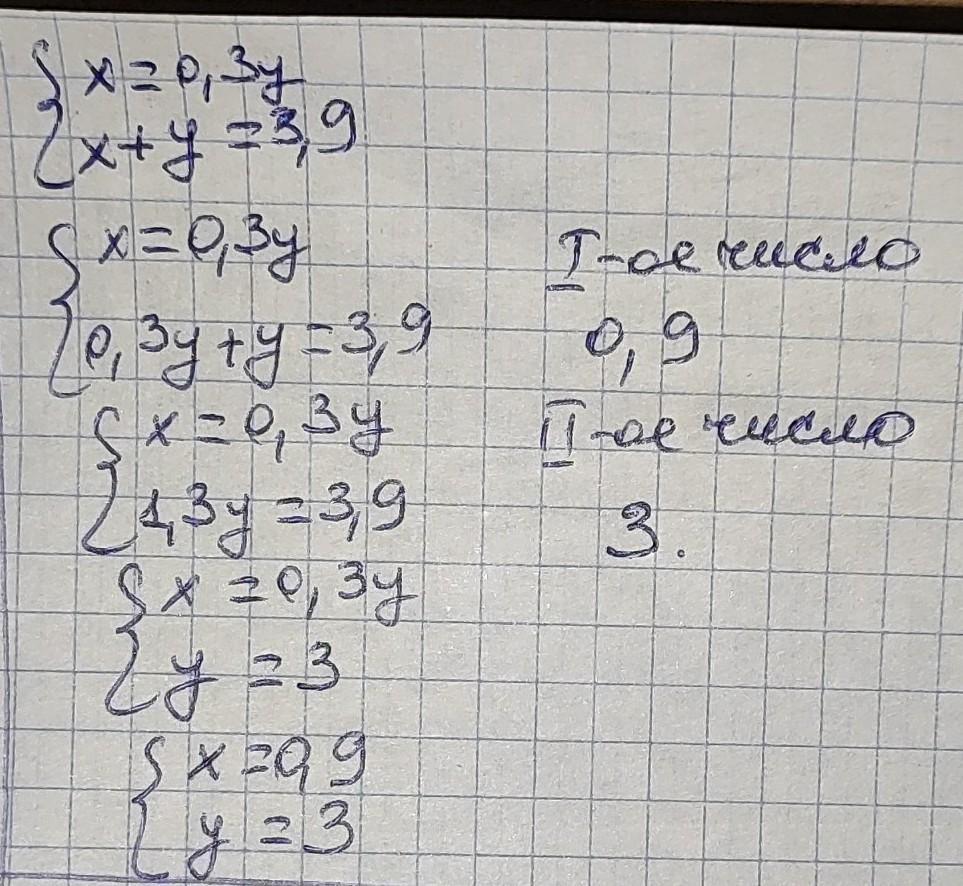 x = 0,3y
x + y = 3,9
x = 0,3y
0,3y + y = 3,9
x = 0,3y
1,3y = 3,9
x = 0,3y
y = 3
x = 0,9
y = 3
I-ое число
0,9
II-ое число
3.